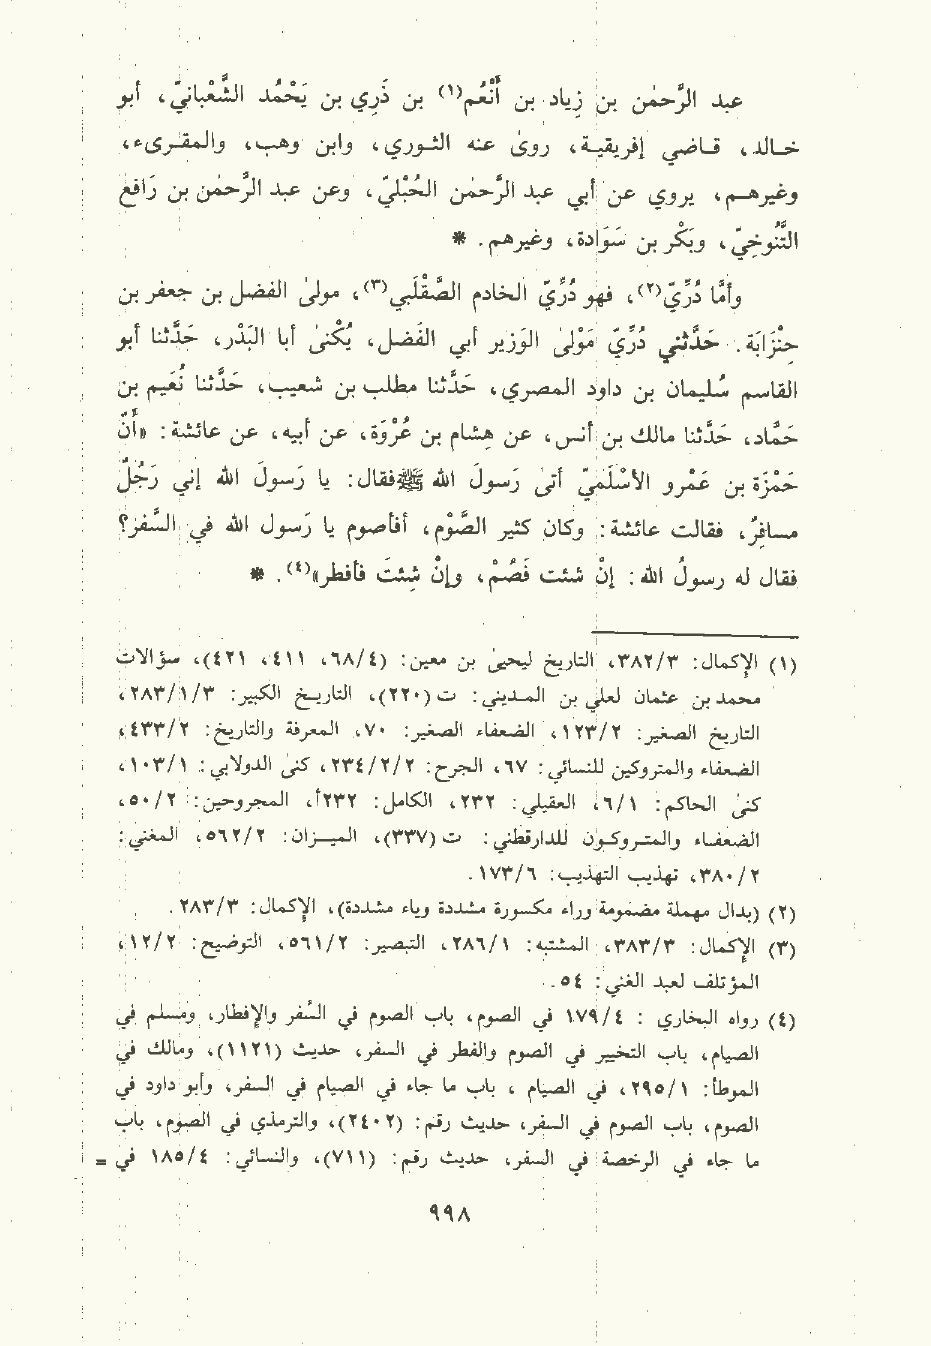 عبد الرَّحمٰن بن زِياد بن أَنْعُم(١) بن ذَرِي بن يَحْمُد الشَّعْبانيّ، أبو
خالد، قاضي إفريقية، روى عنه الثوري، وابن وهب، والمقرىء،
وغيرهم، يروي عن أبي عبد الرَّحمٰن الحُبْليّ، وعن عبد الرَّحمٰن بن رَافعٍ
التَّنُوخِيّ، وبَكْر بن سَوَادة، وغيرهم. *
وأمَّا دُرِّيّ(٢)، فهو دُرِّيّ الخادم الصَّقْلَبي(٣)، مولىٰ الفضل بن جعفر بن
حِنْزَابَة. حَدَّثني دُرِّيّ مَوْلىٰ الوَزير أبي الفَضل، يُكْنىٰ أبا البَدْر، حَدَّثنا أبو
القاسم سُليمان بن داود المصري، حَدَّثنا مطلب بن شعيب، حَدَّثنا نُعَيم بن
حَمَّاد، حَدَّثنا مالك بن أنس، عن هِشام بن عُرْوَة، عن أبيه، عن عائشة: «أَنّ
حَمْزَة بن عَمْرو الأسْلَمِيّ أتىٰ رَسولَ الله ﷺ فقال: يا رَسولَ الله إني رَجُلٌ
مسافِرٌ، فقالت عائشة: وكان كثير الصَّوْم، أفأصوم يا رَسول الله في السَّفر؟
فقال له رسولُ الله: إنْ شئت فَصُمْ، وإنْ شِئتَ فأفطر»(٤). *
(١) الإكمال: ٣٨٢/٣، التاريخ ليحيىٰ بن معين: (٦٨/٤، ٤١١، ٤٢١)، سؤالات
محمد بن عثمان لعلي بن المديني: ت (٢٢٠)، التاريخ الكبير: ٢٨٣/١/٣،
التاريخ الصغير: ١٢٣/٢، الضعفاء الصغير: ٧٠، المعرفة والتاريخ: ٤٣٣/٢،
الضعفاء والمتروكين للنسائي: ٦٧، الجرح: ٢٣٤/٢/٢، كنىٰ الدولابي: ١٠٣/١،
كنىٰ الحاكم: ٦/١، العقيلي: ٢٣٢، الكامل: ٢٣٢أ، المجروحين: ٥٠/٢،
الضعفاء والمتروكون للدارقطني: ت (٣٣٧)، الميزان: ٥٦٢/٢، المغني:
٣٨٠/٢، تهذيب التهذيب: ١٧٣/٦.
(٢) (بدال مهملة مضمومة وراء مكسورة مشددة وياء مشددة)، الإكمال: ٢٨٣/٣.
(٣) الإكمال: ٣٨٣/٣، المشتبه: ٢٨٦/١، التبصير: ٥٦١/٢، التوضيح: ١٢/٢،
المؤتلف لعبد الغني: ٥٤.
(٤) رواه البخاري : ١٧٩/٤ في الصوم، باب الصوم في السَّفر والإفطار، ومسلم في
الصيام، باب التخيير في الصوم والفطر في السفر، حديث (١١٢١)، ومالك في
الموطأ: ٢٩٥/١، في الصيام ، باب ما جاء في الصيام في السفر، وأبو داود في
الصوم، باب الصوم في السفر، حديث رقم: (٢٤٠٢)، والترمذي في الصوم، باب
ما جاء في الرخصة في السفر، حديث رقم: (٧١١)، والنسائي: ١٨٥/٤ في =
٩٩٨